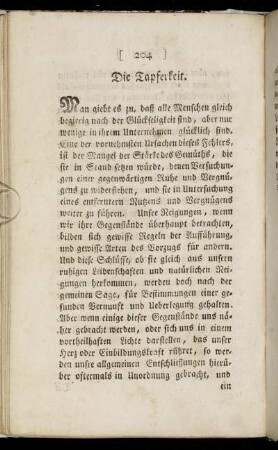 [ 204 ]
Die Tapferkeit.
Man giebt es zu, daß alle Menschen gleich
begierig nach der Glückseligkeit sind, aber nur
wenige in ihrem Unternehmen glücklich sind.
Eine der vornehmsten Ursachen dieses Fehlers,
ist der Mangel der Stärke des Gemüths, die
sie in Stand setzen würde, denen Versuchun-
gen einer gegenwärtigen Ruhe und Vergnü-
gens zu widerstehen, und sie in Untersuchung
eines entferntern Nutzens und Vergnügens
weiter zu führen. Unsre Neigungen, wenn
wir ihre Gegenstände überhaupt betrachten,
bilden sich gewisse Regeln der Aufführung,
und gewisse Arten des Vorzugs für andern.
Und diese Schlüsse, ob sie gleich aus unsern
ruhigen Leidenschaften und natürlichen Nei-
gungen herkommen, werden doch nach der
gemeinen Sage, für Bestimmungen einer ge-
sunden Vernunft und Ueberlegung gehalten.
Aber wenn einige dieser Gegenstände uns nä-
her gebracht werden, oder sich uns in einem
vortheilhaften Lichte darstellen, das unser
Herz oder Einbildungskraft rühret, so wer-
den unsre allgemeinen Entschliessungen hierü-
ber oftermals in Unordnung gebracht, und
ein